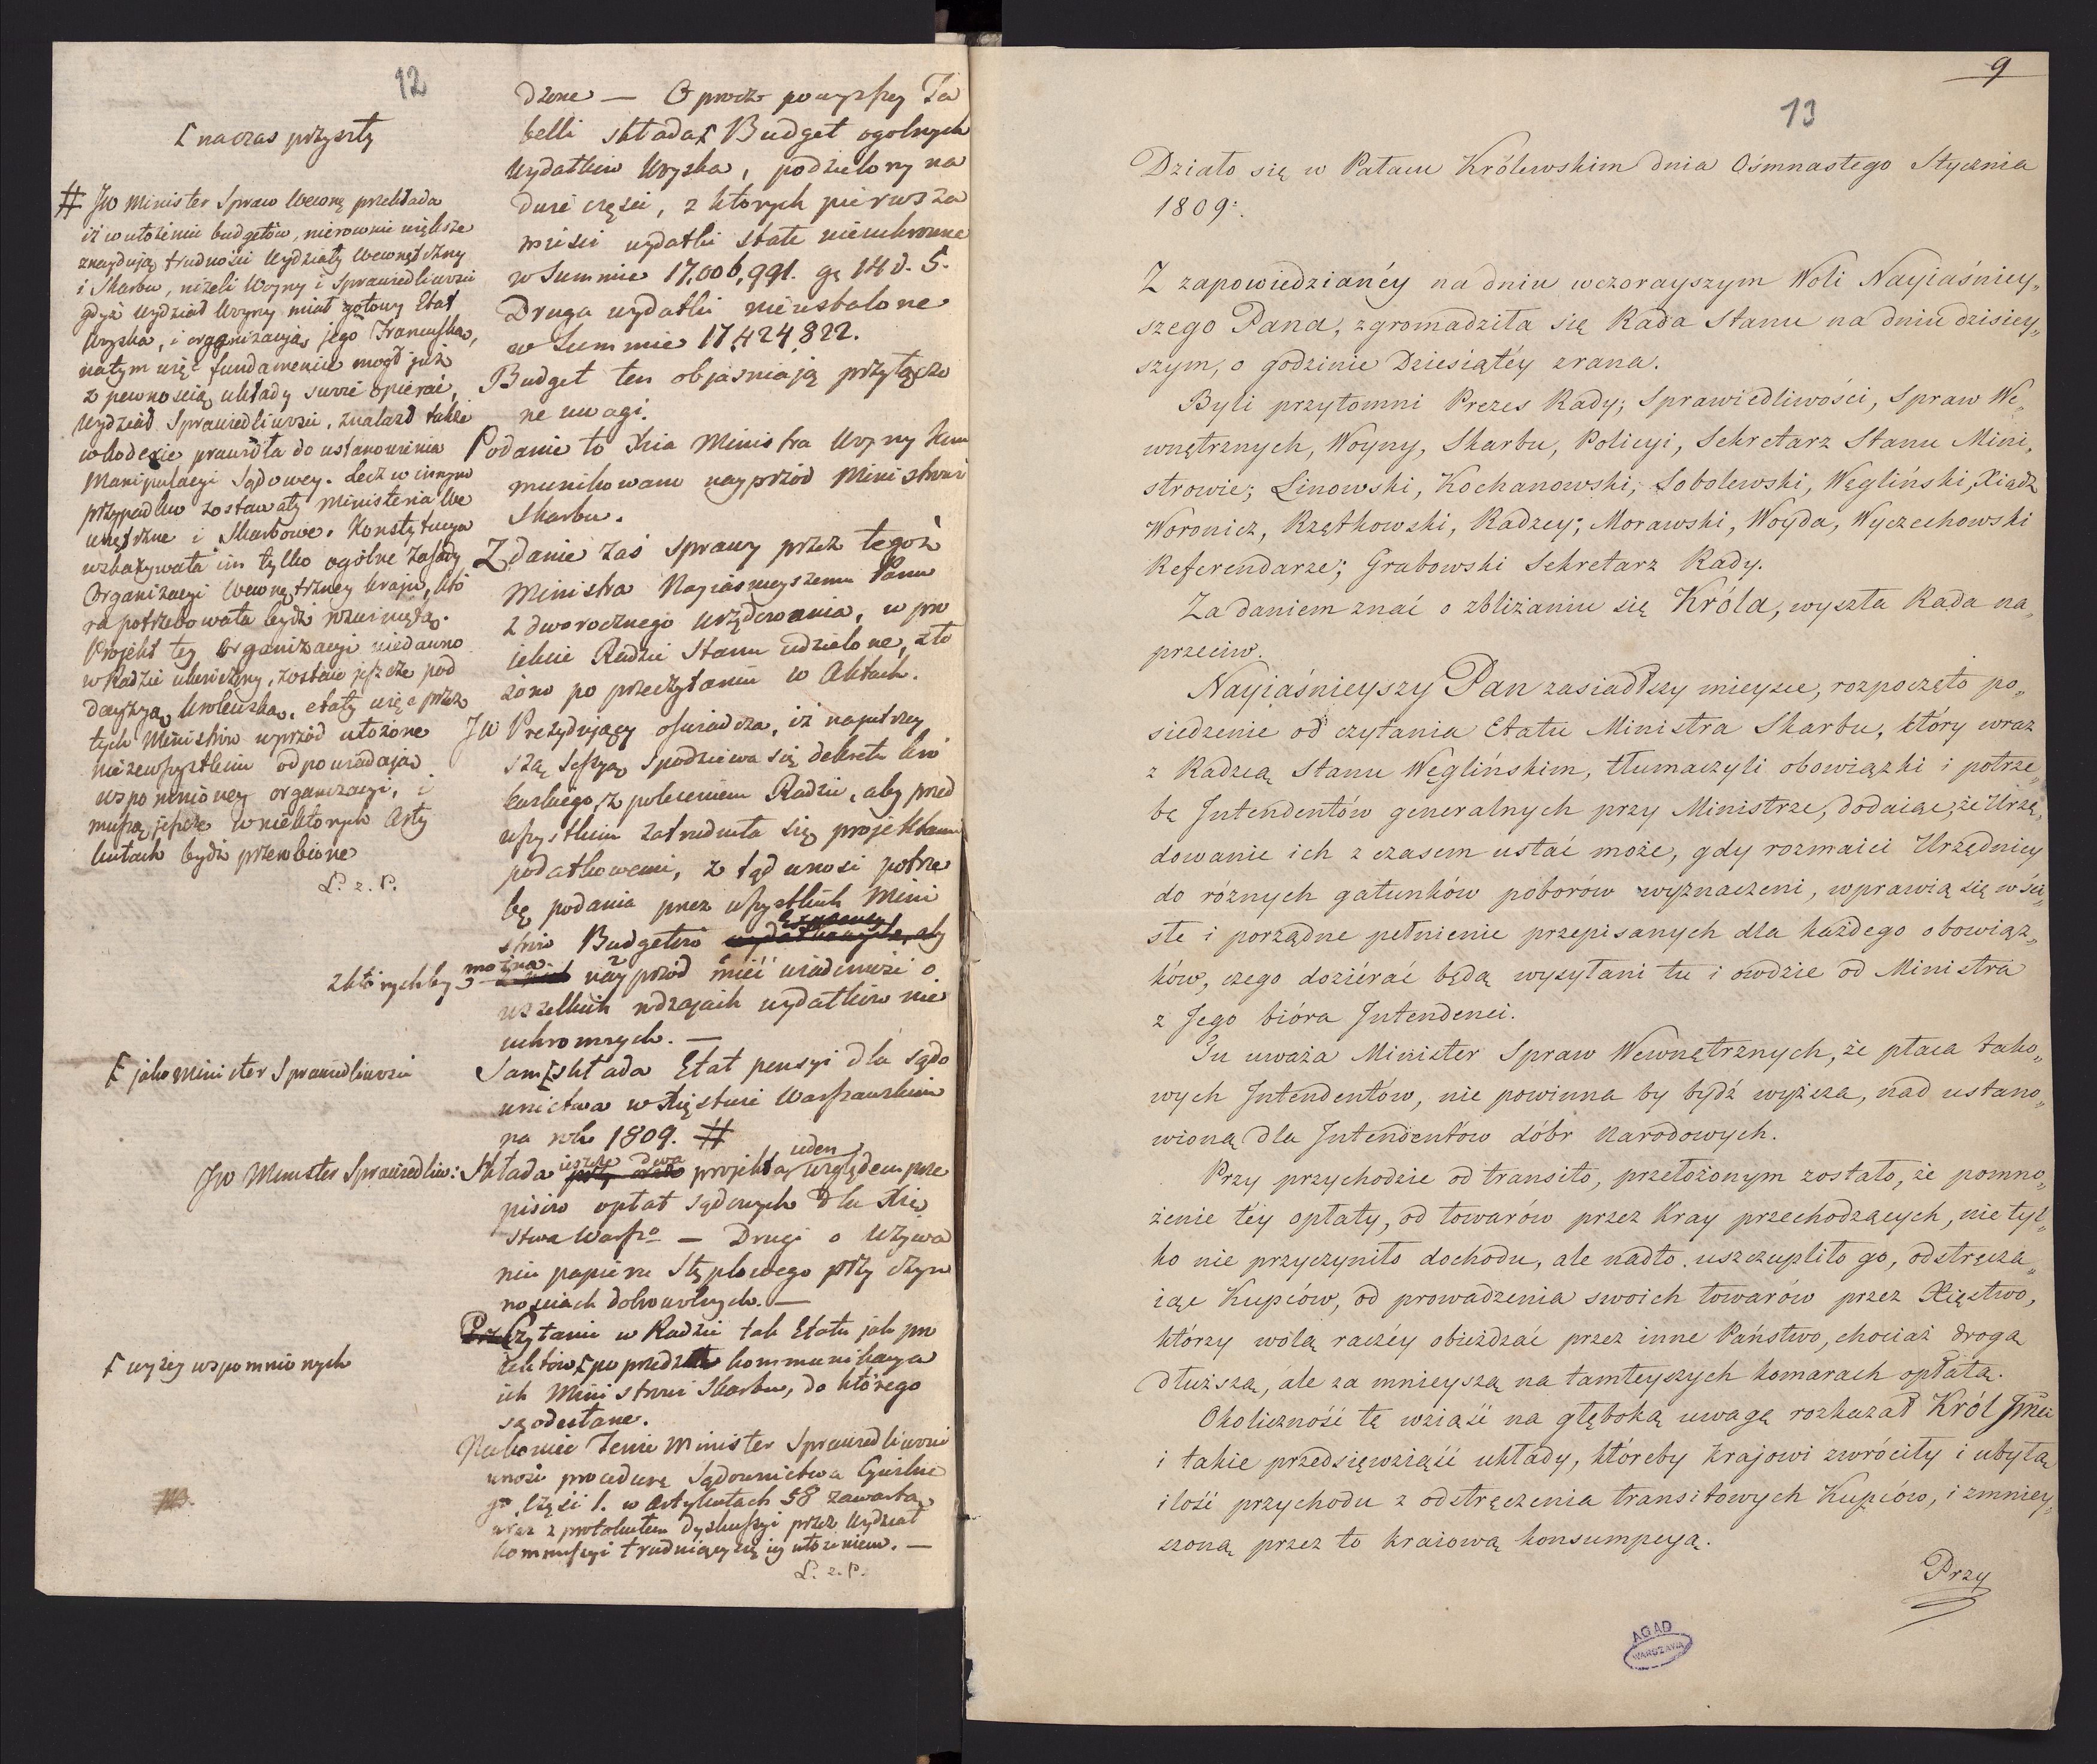 12
[ na czas przyszły
# JW Minister Spraw Wewnę przekłada
iż w ułożeniu budgetów, nierownie większe
znayduią trudności Wydziały Wewnętrzny
i Skarbu, niżeli Woyny i Sprawiedliwości
gdyż Wydział Woyny miał gotowy Etat
Woyska, i organizacyą jego Francuską,
na tym więc fundamencie mogł już
z pewnością układy swoie opierać,
Wydział Sprawiedliwości, znalazł także
w kodexie prawidła do ustanowienia
Manipulacyi Sądowey. Lecz w innym
przypadku zostawały Ministeria We
wnętrzne i Skarbowe. Konstytucya
wskazywała im tylko ogólne zasady
Organizacyi Wewnętrzney kraju, któ
ra potrzebowała bydź rozwiniętą.
Projekt tey Organizacyi niedawno
w Radzie ukończony, zostaie jeszcze pod
decyzyą Krolewską, etaty więc przez
tych Ministrów wprzód ułożone
nie ze wszystkiem odpowiadaią
wspomnioney organizacyi, i
muszą jeszcze w niektorych Arty
kułach bydź przerobione
L. z. P.
z których by
[ jako Minister Sprawiedliwości
JW Minister Sprawiedliw:
[ wyżey wspomnionych
dzone — Oprocz powyższey Ta
belli składa [ Budget ogolnych
Wydatków Woyska, podzielony na
dwie części, z ktorych pierwsza
mieści wydatki stałe nieuchronne
w Summie 17,006,991. gę 14 d. 5.
Druga wydatki nieustalone
w Summie 17,424,822.
Budget ten objasniają przyłączo
ne uwagi.
Podanie to Xcia Ministra Woyny kom
munikowane nayprzód Ministrowi
Skarbu.
Zdanie zaś sprawy przez tegoż
Ministra Nayiasnieyszemu Panu
z dworocznego urzędowania, w pro
iekcie Radzie Stanu udzielone, zło
żono po przeczytaniu w Aktach.
JW Prezyduiący oświadcza, iż najutrzey
szą Sessyą spodziewa się dekretu kró
lewskiego, z poleceniem Radzie, aby przed
wszystkiem zatrudniła się projektami
podatkowemi, z tąd wnosi potrze
bę podania przez wszystkich Mini
strów Budgetów
można nayprzód mieć wiadomość o
wszelkich rodzajach wydatków nie
uchronnych. —
Sam [ składa Etat pensyi dla sądo
wnictwa w Xięstwie Warszawskim
na rok 1809. #
Składa ieszcze dwa projekta, ieden względem prze
pisów opłat sądowych dla Xię
stwa Warszo — Drugi o Używa
niu papieru Stęplowego przy czyn
nościach dobrowolnych. —
Czytanie w Radzie tak Etatu jak pro
iektów [ poprzedzi kommunikacya
ich Ministrowi Skarbu, do którego
są odesłane.
Nakoniec Tenże Minister Sprawiedliwości
wnosi procedurę Sądownictwa Cywilne
go Części 1. w Artykułach 58 zawartą,
wraz z protokułem dyskussyi przez Wydział
kommissyi trudniący się iey ułożeniem. —
L. z. P.
9
13
Działo się w Pałacu Królewskim dnia Ośmnastego Stycznia
1809:.
Z zapowiedzianéy na dniu wczorayszym Woli Nayiaśniey„
szego Pana, zgromadziła się Rada Stanu na dniu dzisiey„
szym, o godzinie Dziesiątéy zrana.
Byli przytomni Prezes Rady; Sprawiedliwości, Spraw We„
wnętrznych, Woyny, Skarbu, Policyi, Sekretarz Stanu Mini„
strowie; Linowski, Kochanowski, Sobolewski, Węgliński, Xiądz
Woronicz, Rzętkowski, Radzcy; Morawski, Woyda, Wyczechowski
Referendarze; Grabowski Sekretarz Rady.
Za daniem znać o zbliżaniu się Króla, wyszła Rada na„
przeciw.
Nayiaśnieyszy Pan zasiadłszy mieysce, rozpoczęto po„
siedzenie od czytania Etatu Ministra Skarbu, który wraz
z Radzcą Stanu Węglińskim, tłumaczyli obowiązki i potrze„
bę Intendentów generalnych przy Ministrze, dodaiąc, że Urzę„
dowanie ich z czasem ustać może, gdy rozmaici Urzędnicy
do różnych gatunków poborów wyznaczeni, wprawią się w ści„
słe i porządne pełnienie przepisanych dla każdego obowiąz„
ków, czego doziérać będą wysyłani tu i owdzie od Ministra
z Jego bióra Intendenci.
Tu uważa Minister Spraw Wewnętrznych, że płaca tako„
wych Intendentów, nie powinna by bydź wyższa, nad ustano„
wioną dla Intendentów dóbr Narodowych.
Przy przychodzie od transito, przełożonym zostało, że pomno„
żenie téy opłaty, od towarów przez Kray przechodzących, nie tyl„
ko nie przyczyniło dochodu, ale nadto uszczupliło go, odstręcza„
iąc Kupców, od prowadzenia swoich towarów przez Xięstwo,
którzy wolą raczéy obieżdzać przez inne Państwo, chociaż drogą
dłuższą, ale za mnieyszą na tamteyszych komorach opłatą.
Okoliczność tę wziąść na głęboką uwagę rozkazał Król Jmci
i takie przedsięwziąść układy, któreby krajowi zwróciły i ubyłą
ilość przychodu z odstręczenia transitowych Kupców, i zmniey„
szoną przez to kraiową konsumpcyą.
Przy
AGAD
WARSZAWA